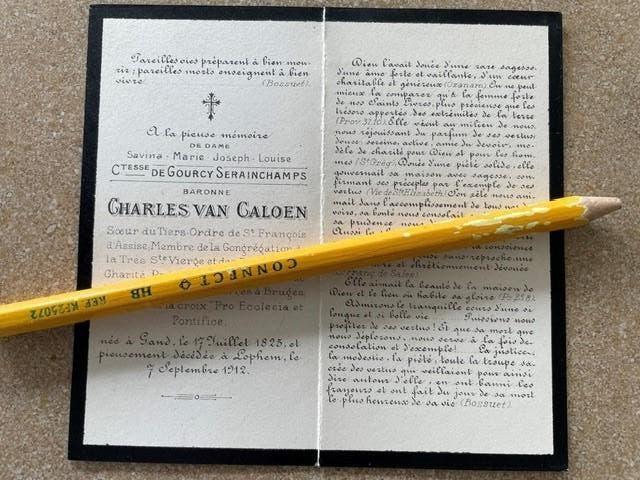 Pareilles vies préparent à bien mou-
rir; pareilles morts enseignent à bien
vivre. (Bossuet).
A la pieuse mémoire
DE DAME
Savina-Marie-Joseph-Louise
CTESSE DE GOURCY SERAINCHAMPS
BARONNE
CHARLES VAN CALOEN
Sœur du Tiers-Ordre de St François
d'Assise, Membre de la Congrégation
la Très Ste Vierge et de
Charité
à Bruges
la croix "Pro Ecclesia et
Pontifice
née à Gand, le 17 Juillet 1825, et
pieusement décédée à Lophem, le
7 Septembre 1912.
Dieu l'avait douée d'une rare sagesse,
d'une âme forte et vaillante, d'un cœur
charitable et généreux (Ozanam). On ne peut
mieux la comparer qu'à la femme forte
de nos Saints Livres, plus précieuse que les
trésors apportés des extrémités de la terre
(Prov. 31.10). Elle vécut au milieu de nous,
nous réjouissant du parfum de ses vertus
douce, sereine, active, amie du devoir, mo-
dèle de charité pour Dieu et pour les hom-
mes (St Grég). Douée d'une piété solide, elle
gouvernait sa maison avec sagesse, con-
firmant ses préceptes par l'exemple de ses
vertus (Vie de Ste Elisabeth). Son zèle nous ani-
mait dans l'accomplissement de tous nos
devoirs, sa bonté nous consolait
sa prudence nous
Aussi la
conscience
et chrétiennement dévouée
(St Franç. de Sales).
Elle aimait la beauté de la maison de
Dieu et le lieu où habite sa gloire (Ps 25.8).
Admirons le tranquille cours d'une si
longue et si belle vie. Puissions nous
profiter de ses vertus! Et que sa mort que
nous déplorons, nous serve à la fois de
consolation et d'exemple! La justice,
la modestie, la piété, toute la troupe sa-
crée des vertus qui veillaient pour ainsi
dire autour d'elle, en ont banni les
frayeurs et ont fait du jour de sa mort
le plus heureux de sa vie (Bossuet).
CONNECT HB
REF KF25072